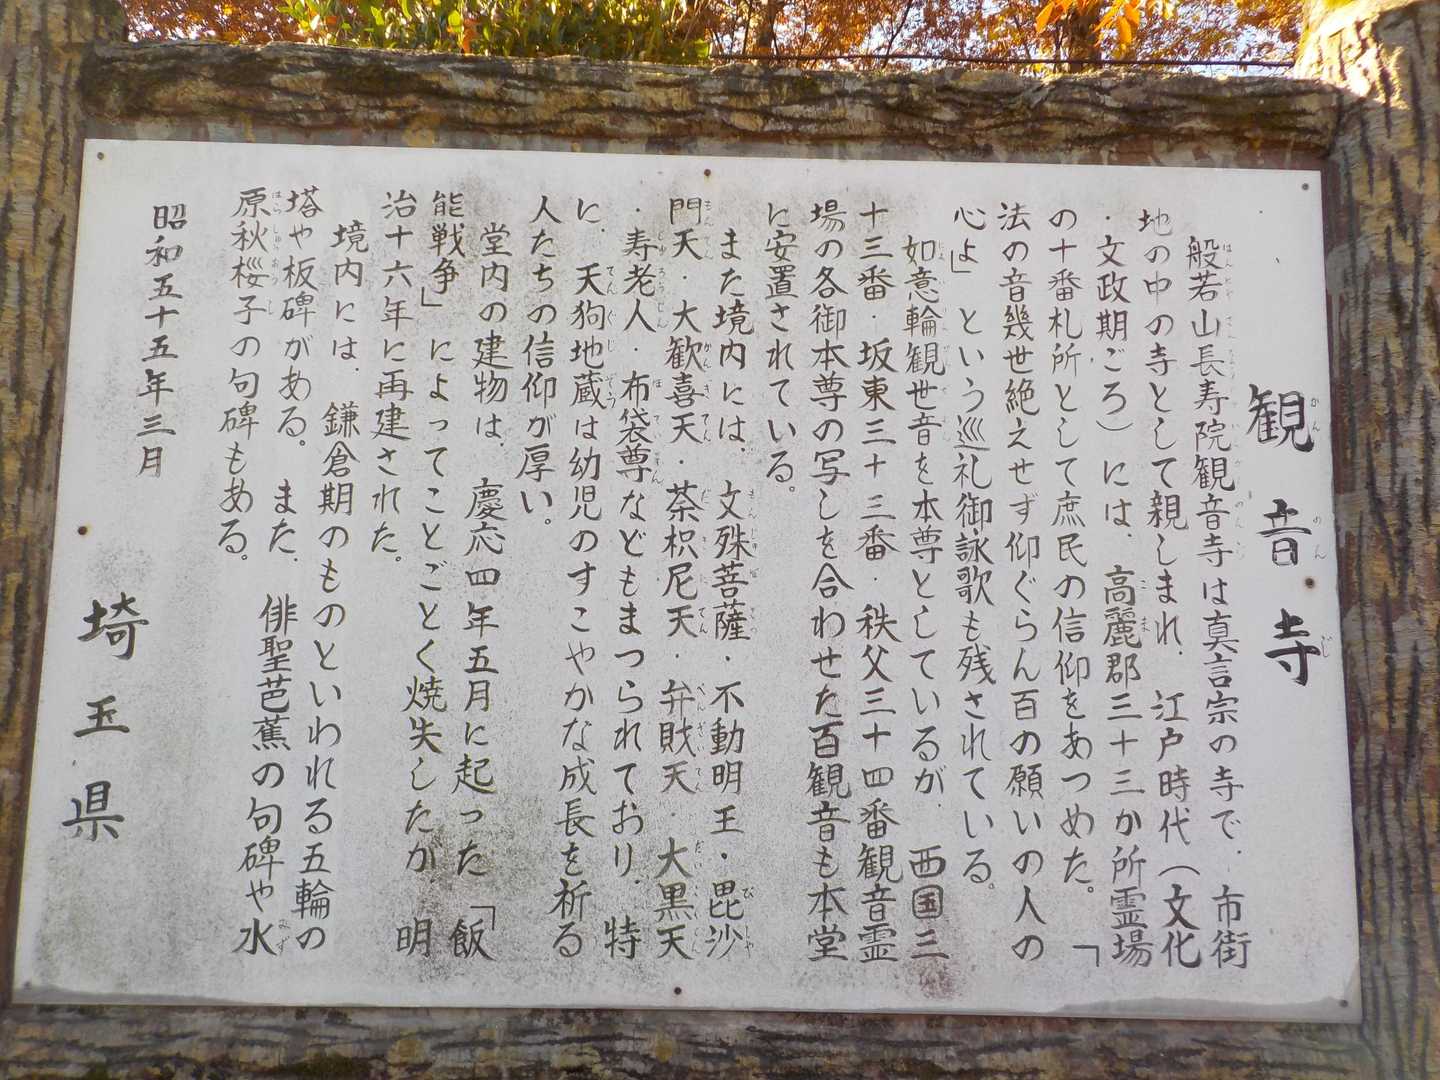 観音寺
般若山長寿院観音寺は真言宗の寺で、市街
地の中の寺として親しまれ、江戸時代(文化
・文政期ごろ)には、高麗郡三十三か所霊場
の十番札所として庶民の信仰をあつめた。「
法の音幾世絶えせず仰ぐらん百の願いの人の
心よ」という巡礼御詠歌も残されている。
如意輪観世音を本尊としているが、西国三
十三番・坂東三十三番・秩父三十四番観音霊
場の各御本尊の写しを合わせた百観音も本堂
に安置されている。
また境内には、文殊菩薩・不動明王・毘沙
門天・大歓喜天・荼枳尼天・弁財天・大黒天
・寿老人・布袋尊などもまつられており、特
に、天狗地蔵は幼児のすこやかな成長を祈る
人たちの信仰が厚い。
堂内の建物は、慶応四年五月に起った「飯
能戦争」によってことごとく焼失したが、明
治十六年に再建された。
境内には、鎌倉期のものといわれる五輪の
塔や板碑がある。また、俳聖芭蕉の句碑や水
原秋桜子の句碑もある。
昭和五十五年三月
埼玉県